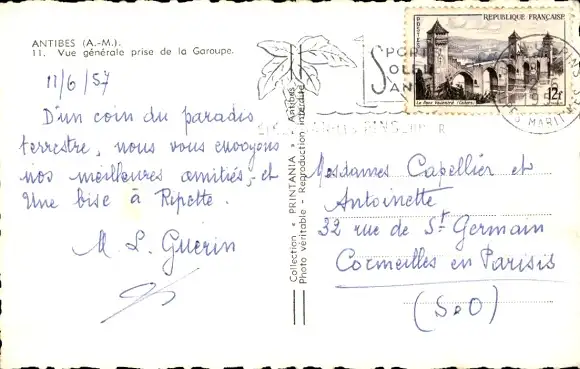 ANTIBES (A.-M.).
11. Vue générale prise de la Garoupe.
11/6/57
D'un coin du paradis
terrestre, nous vous envoyons
nos meilleures amitiés, et
Une bise à Ripette.
M. L. Guerin
Collection « PRINTANIA » - Antibes
Photo véritable - Reproduction interdite
SPORT
SOLEIL
SANTÉ
POSTES
REPUBLIQUE FRANÇAISE
Le Pont Valentré (Cahors)
12f
MARITIMES
Mesdames Capellier et
Antoinette
32 rue de St Germain
Cormeilles en Parisis
(S & O)